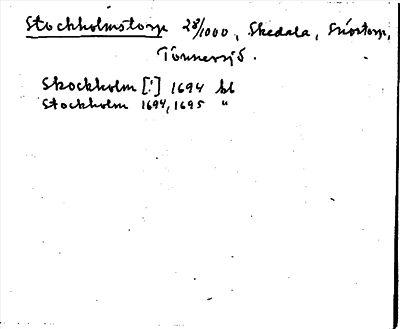 Stockholmstorp 28/1000, Skedala, Sniostorp,
Tönnersjö.
Skockholm [!] 1694 bl
Stockholm 1694, 1695 "